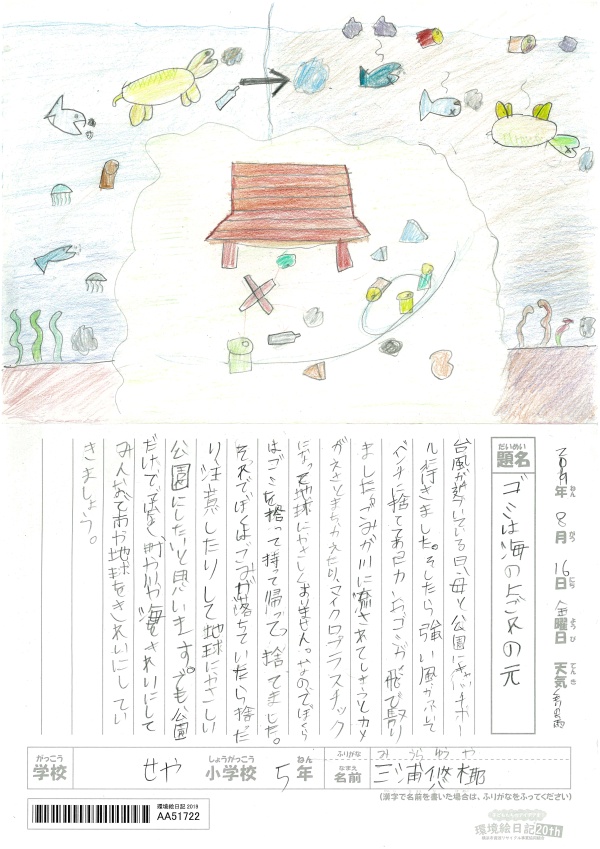 2019年 8月 16日 金曜日 天気
ねん がつ にち ようび てんき
だいめい
題名
ゴミは海のよごれの元
台風が近づいている日、母と公園にキャッチボー
ル行きました。そしたら強い風がふいて
ベンチに捨ててあった ゴミが飛び散り
ました。ごみが川に流されてしまうとカメ
がえさとまちがえたり、マイクロプラスチック
になって地球にやさしくありません。なのでぼくら
はゴミを拾って持って帰って、捨てました。
それでぼくはごみが落ちていたら捨た
り注意したりして地球にやさしい
公園にしたいと思います。でも公園
だけでは無く、町や川や海をきれいにして
みんなで市や地球をきれいにしてい
きましょう。
がっこう
学校
せや
しょうがっこう
小学校
5
ねん
年
ふりがな
み うら ゆう や
なまえ
名前
三浦悠椰
(漢字で名前を書いた場合は、ふりがなをふってください)
環境絵日記 2019
AA51722
環境絵日記20th